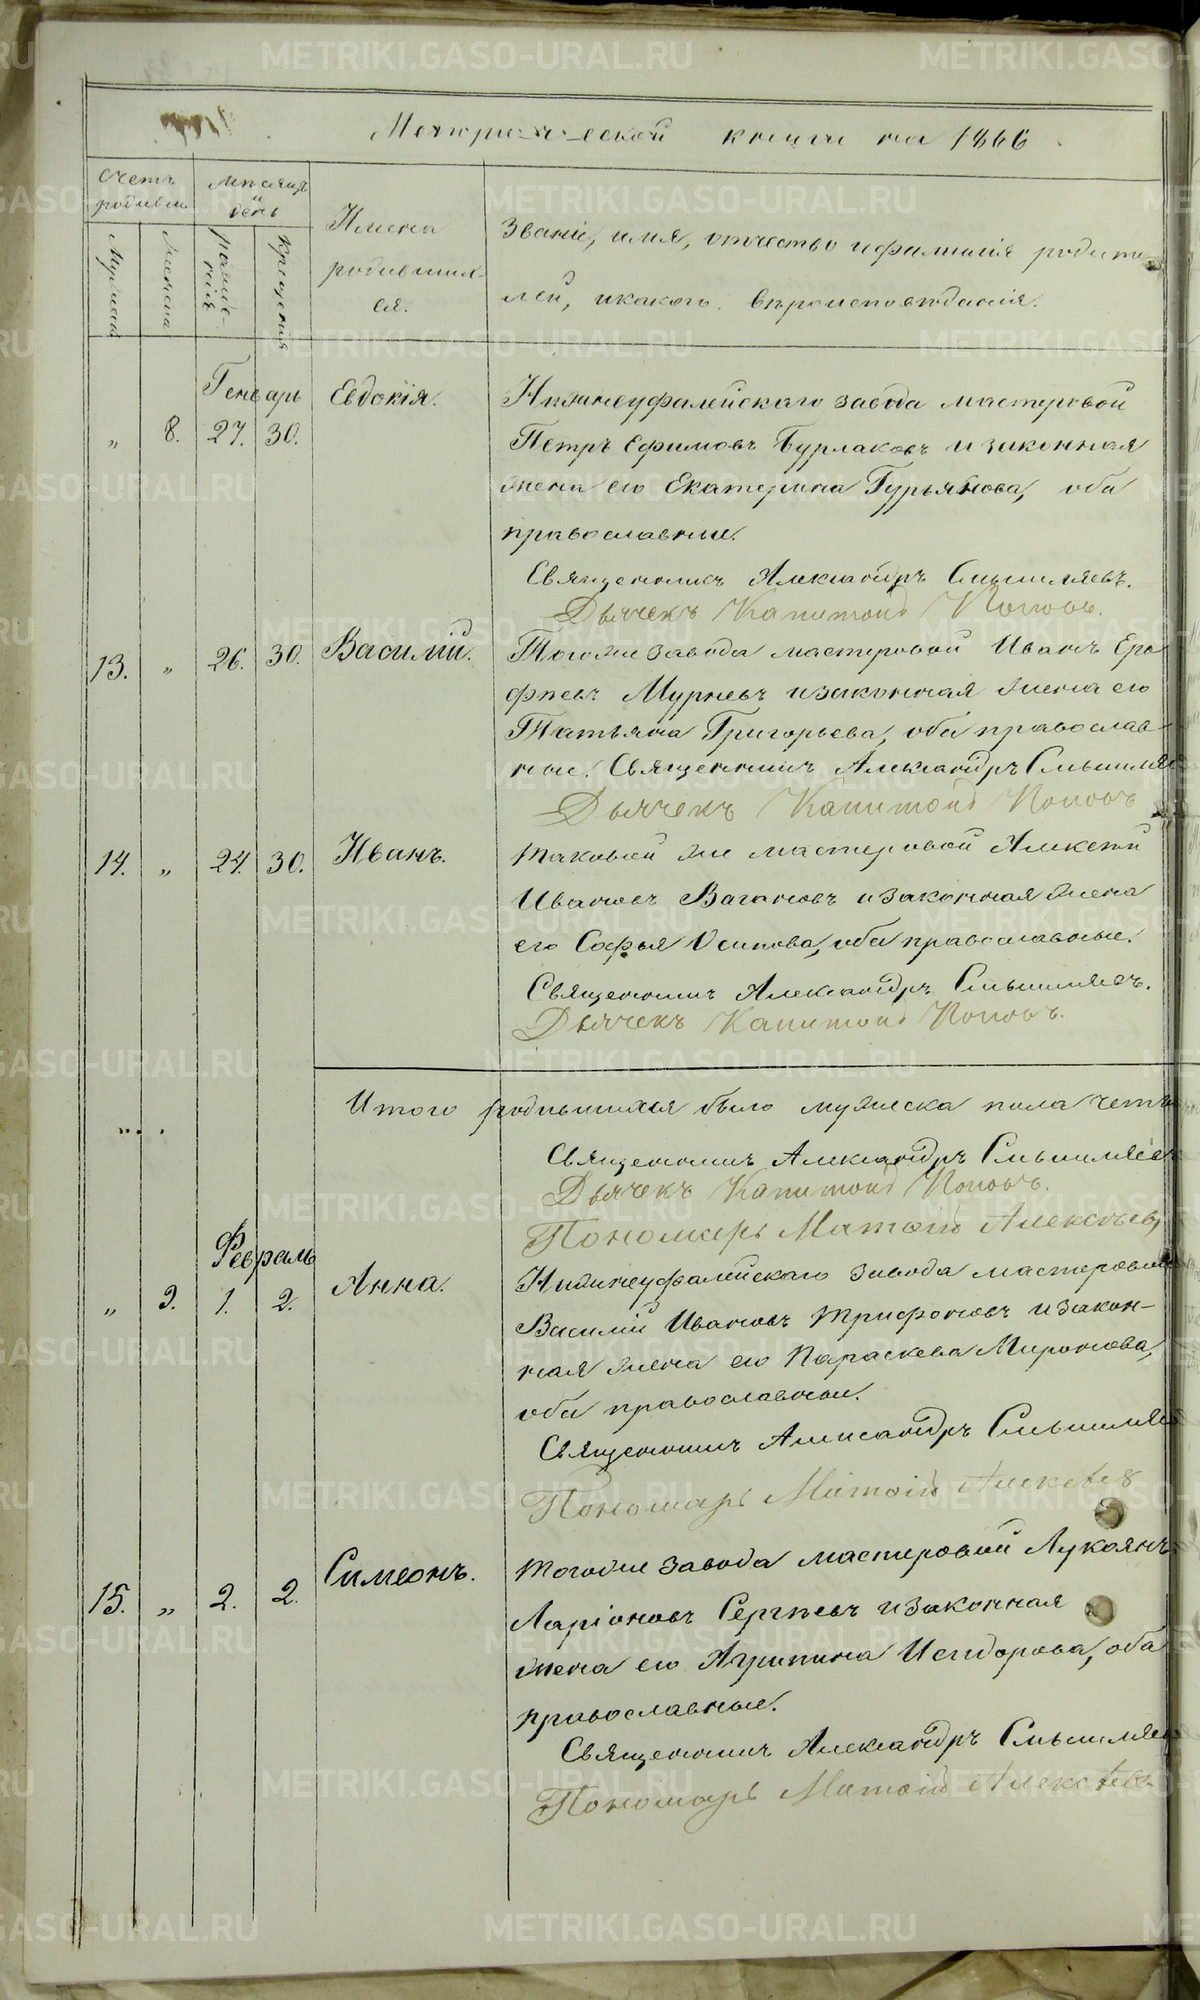 Метрической книги на 1866
Счетъ родивш.
Мѣсяцъ и день
Имена родившихся.
Званіе, имя, отчество и фамилія родите-
лей, и какого вѣроисповѣданія.
Мужеска
Женска
рожде-
нія
крещенія
Генварь
" 8. 27. 30. Евдокія. Нижнеуфалейскаго завода мастеровой
Петръ Ефимовъ Бурлаковъ и законная
жена его Екатерина Гурьянова, оба
православные.
Священникъ Александръ Смышляевъ.
Дьячекъ Капитонъ Поповъ.
13. " 26. 30. Василій. Тогоже завода мастеровой Иванъ Еро
фѣевъ Мурневъ и законная жена его
Татьяна Григорьева, оба православ
ные. Священникъ Александръ Смышляе
Дьячекъ Капитонъ Поповъ
14. " 24. 30. Иванъ. таковой же мастеровой Алексѣй
Ивановъ Вагановъ и законная жена
его Софья Осипова, оба православные.
Священникъ Александръ Смышляевъ.
Дьячекъ Капитонъ Поповъ.
Итого родившихся было мужеска пола четы
Священникъ Александръ Смышляев
Дьячекъ Капитонъ Поповъ.
Пономарь Матѳій Алексѣев
Февраль
" 9. 1. 2. Анна. Нижнеуфалейскаго завода мастеровой
Василій Ивановъ Трифоновъ и закон-
ная жена его Параскева Миронова,
оба православные.
Священникъ Александръ Смышляев
Пономарь Матѳій Алексѣев
15. " 2. 2. Симеонъ. тогоже завода мастеровой Лукоянъ
Ларіоновъ Сергѣевъ и законная
жена его Агрипина Исидорова, оба
православные.
Священникъ Александръ Смышляев
Пономарь Матѳій Алексѣев
METRIKI.GASO-URAL.RU